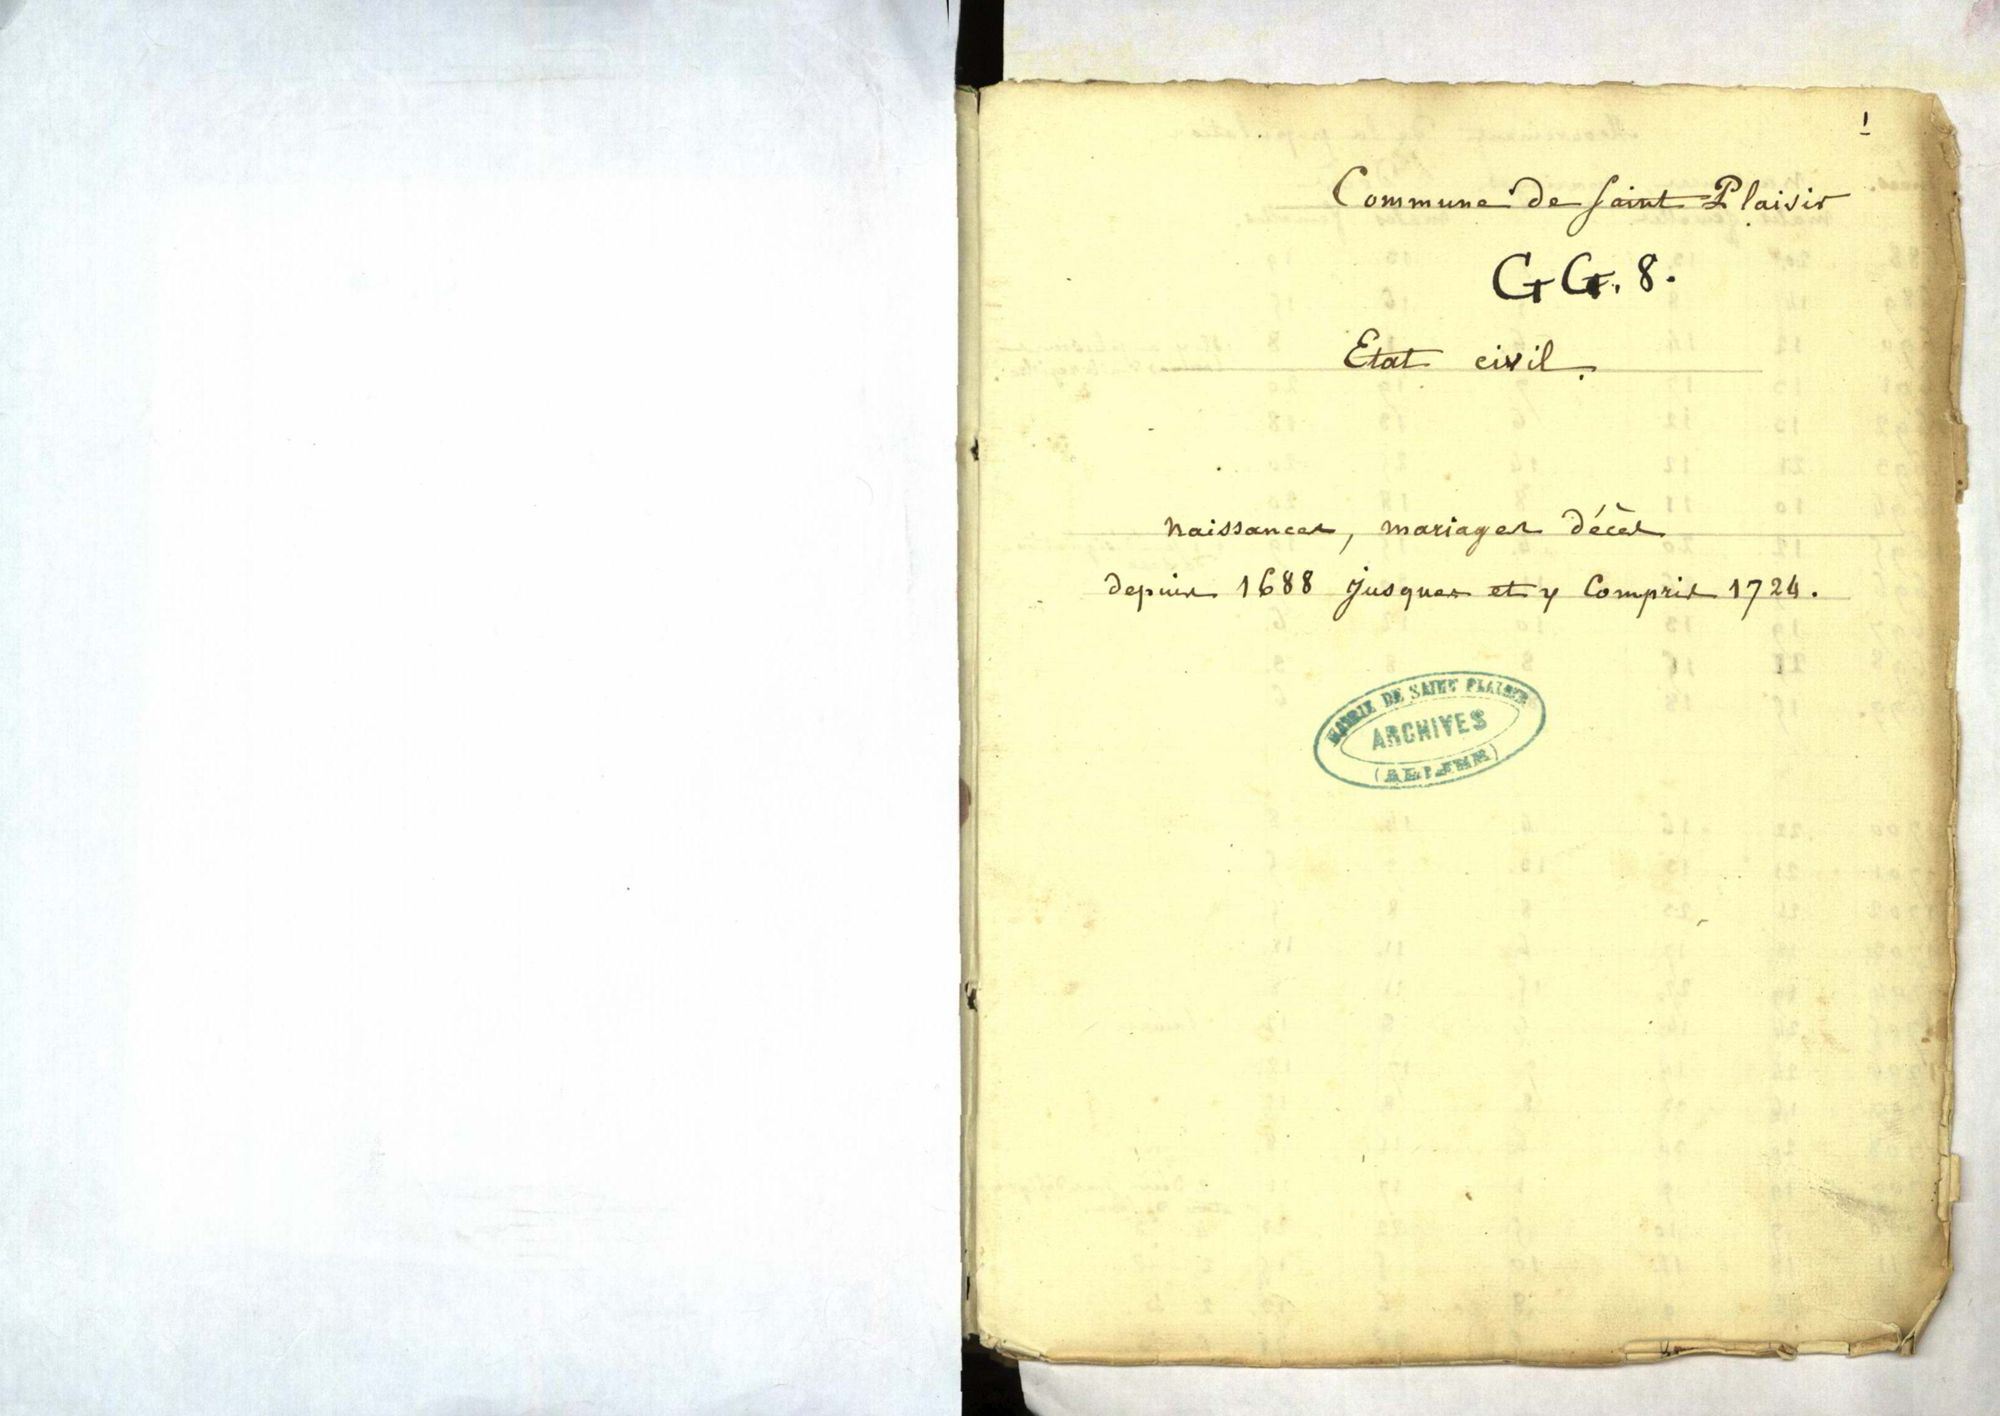 1
Commune de Saint Plaisir
GG. 8.
Etat civil.
Naissances, mariages décès
depuis 1688 jusques et y Compris 1724.
MAIRIE DE SAINT PLAISIR
ARCHIVES
(ALLIER)